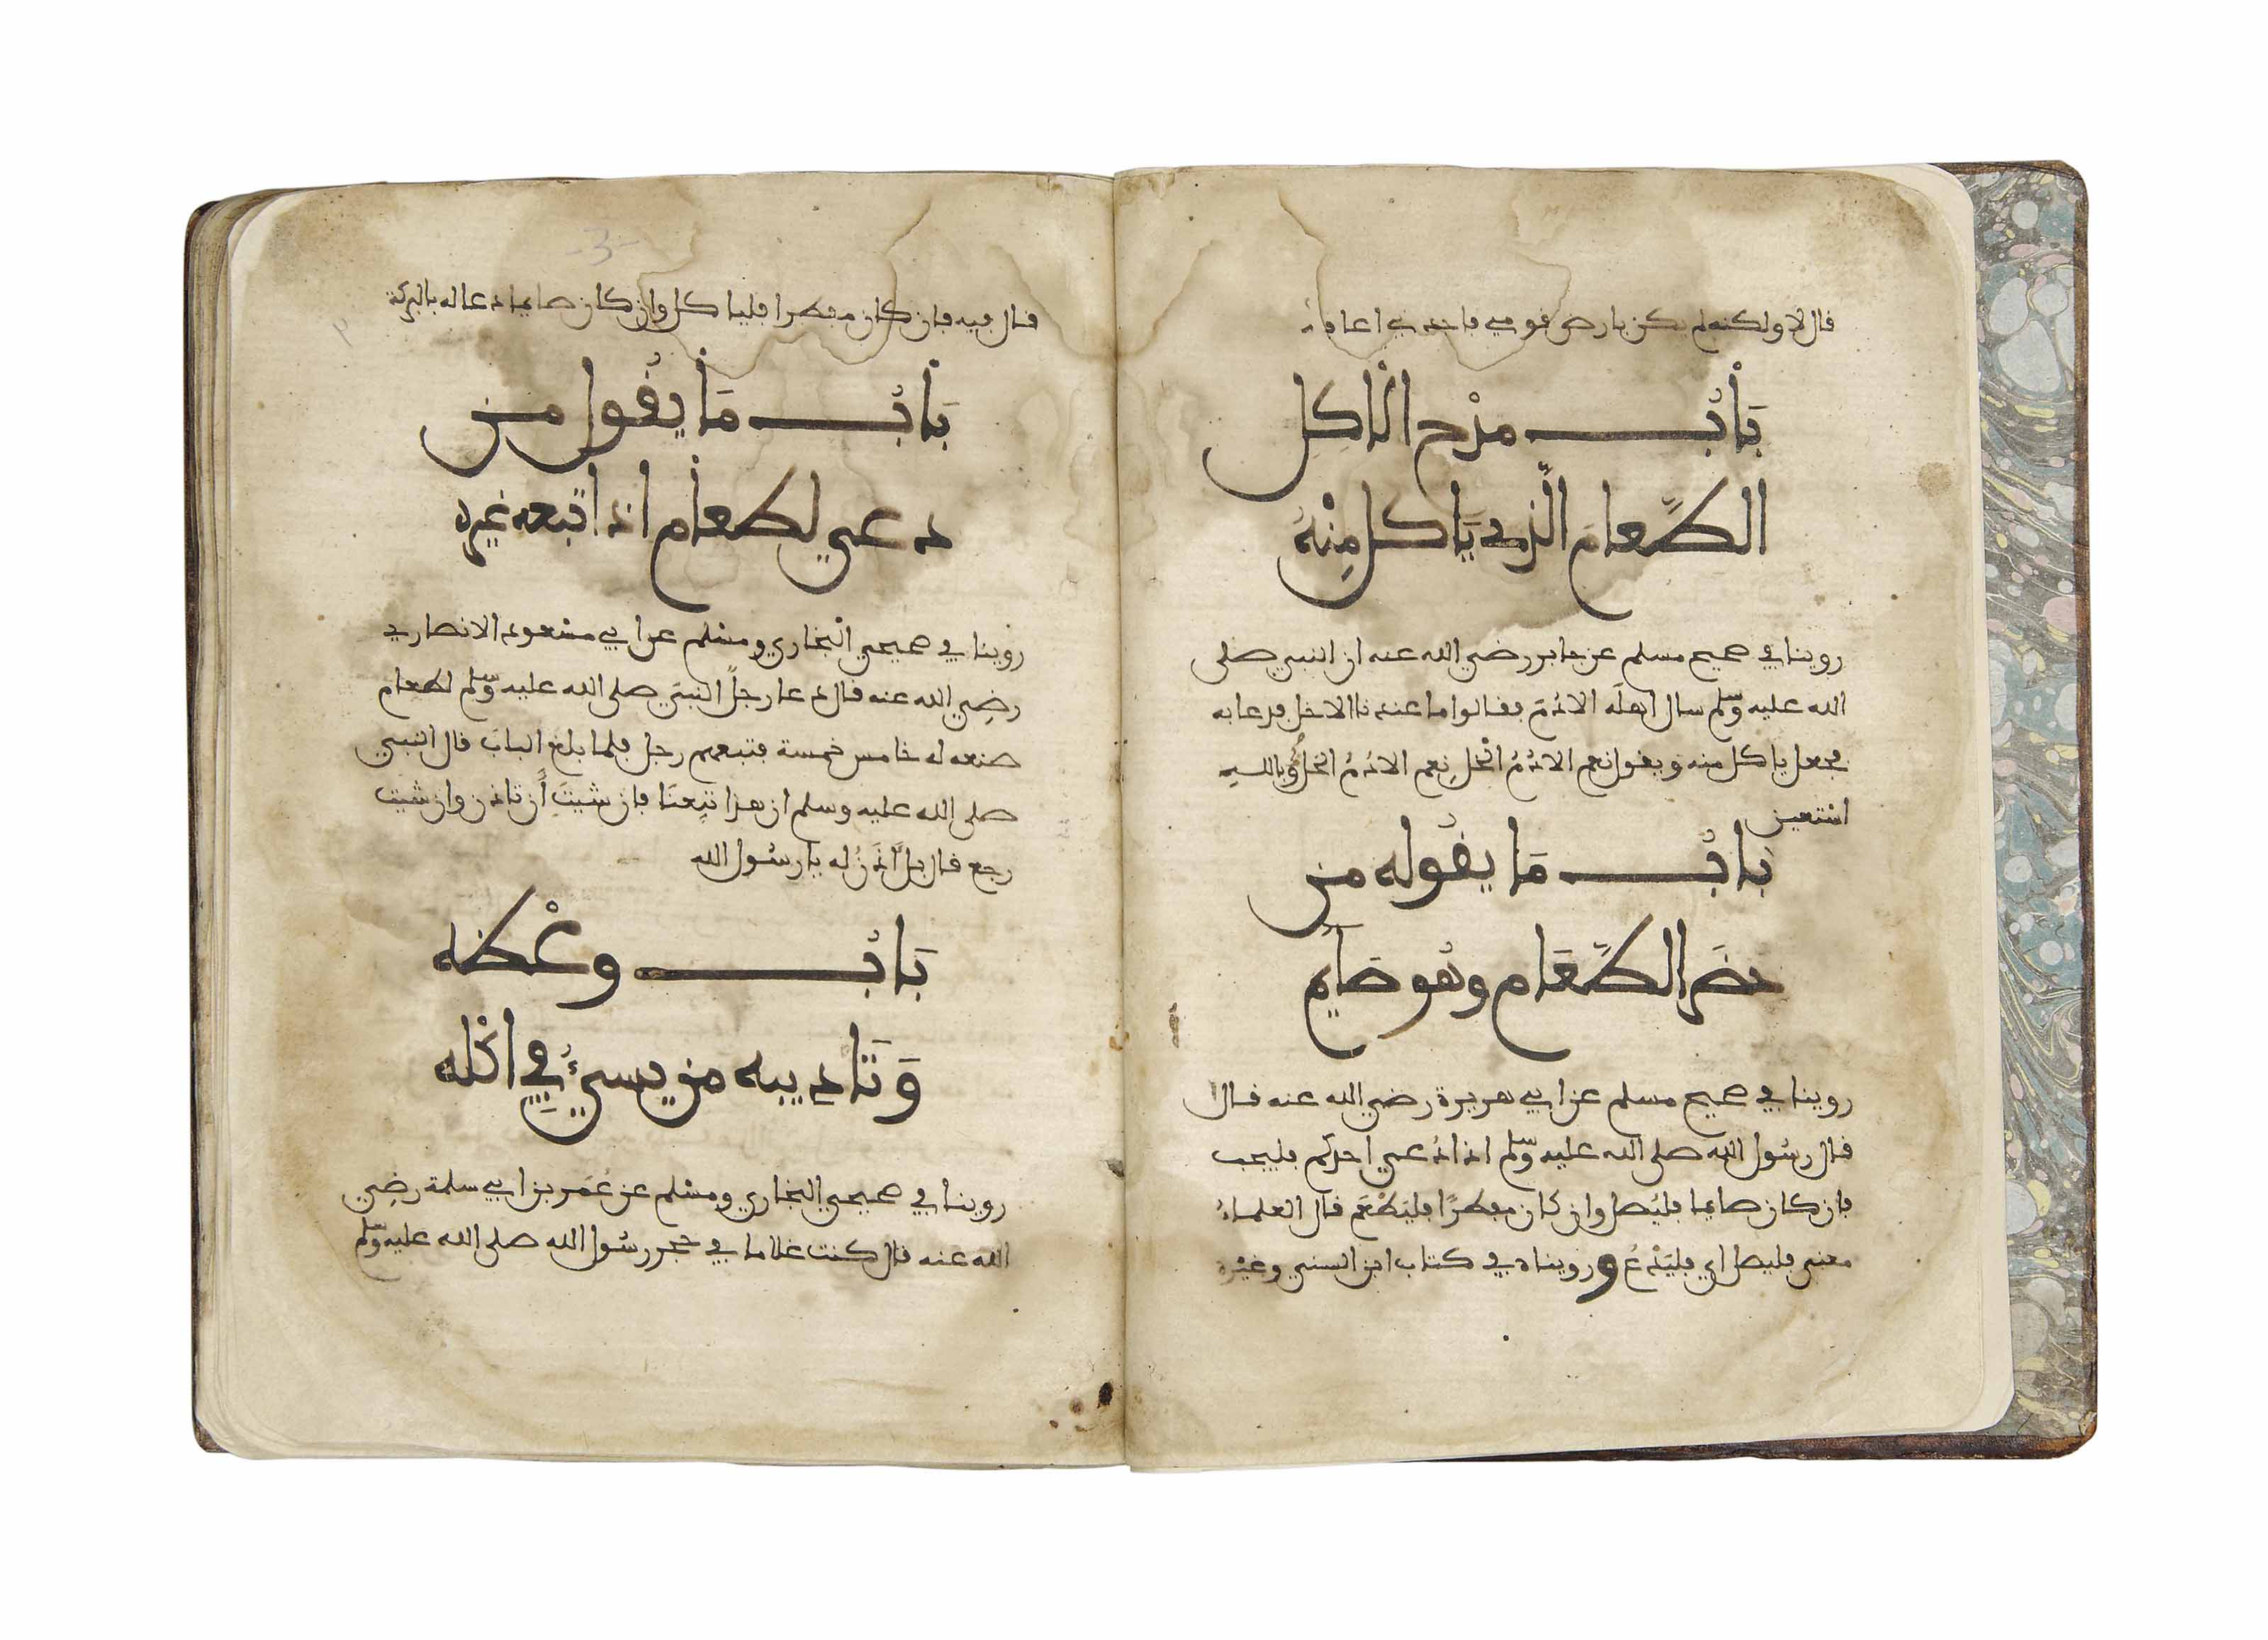 قال لا ولكنه لم يكن بارض قومي فاجدني اعافه
بَابُ مَدْح الْاكِلِ
الطَّعَامَ الَّذي يَاكل مِنْهُ
روينا في صحيح مسلم عن جابر رضي الله عنه ان النبي صلى
الله عليه وسلم سال اهلَه الادُمَ فقالوا ما عندنا الا خل فدعا به
فجعل ياكل منه ويقول نعم الادُمُ الخل نِعم الادُمُ الخلُّ وبالله
استعين
بَابُ مَا يقُوله من
حضَر الطَّعَام وهُو صَايم
روينا في صحيح مسلم عن ابي هريرة رضي الله عنه قال
قال رسُول الله صلى الله عليه وسلم اذا دُعي احدكم فليجب
فان كان صايما فليُصل وان كان مفطرًا فليَطْعَم قال العلماءُ
معنى فليصل اي فليَدْعُ وروينا في كتاب ابن السني وغيْره
قال فيه فان كان مفطرا فلياكل وان كان صايما دعا له بالبركة
بَابُ مَا يقُول من
دعي لطعام اذا تبعه غيره
روينا في صحيحي الْبخاري ومسْلم عن ابي مسْعود الانصاري
رضِي الله عنه قال دعا رجلٌ النبيَ صلى الله عليه وسلم لطعام
صنعه له خامس خمسة فتبعهم رجل فلما بلغ البابَ قال النبي
صلى الله عليه وسلم ان هذا تبِعنَا فان شيتَ أَن تاذن وان شيت
رجع قال بل آذَنُ له يا رسُول الله
بَابُ وعْظه
وَتَاديبه من يسيءُ فِي اكْله
روينا في صحيحي البخاري ومسْلم عن عُمَر بن ابي سلمة رضِي
الله عنه قال كنت غلاما في حجر رسُول الله صلى الله عليه وسلم